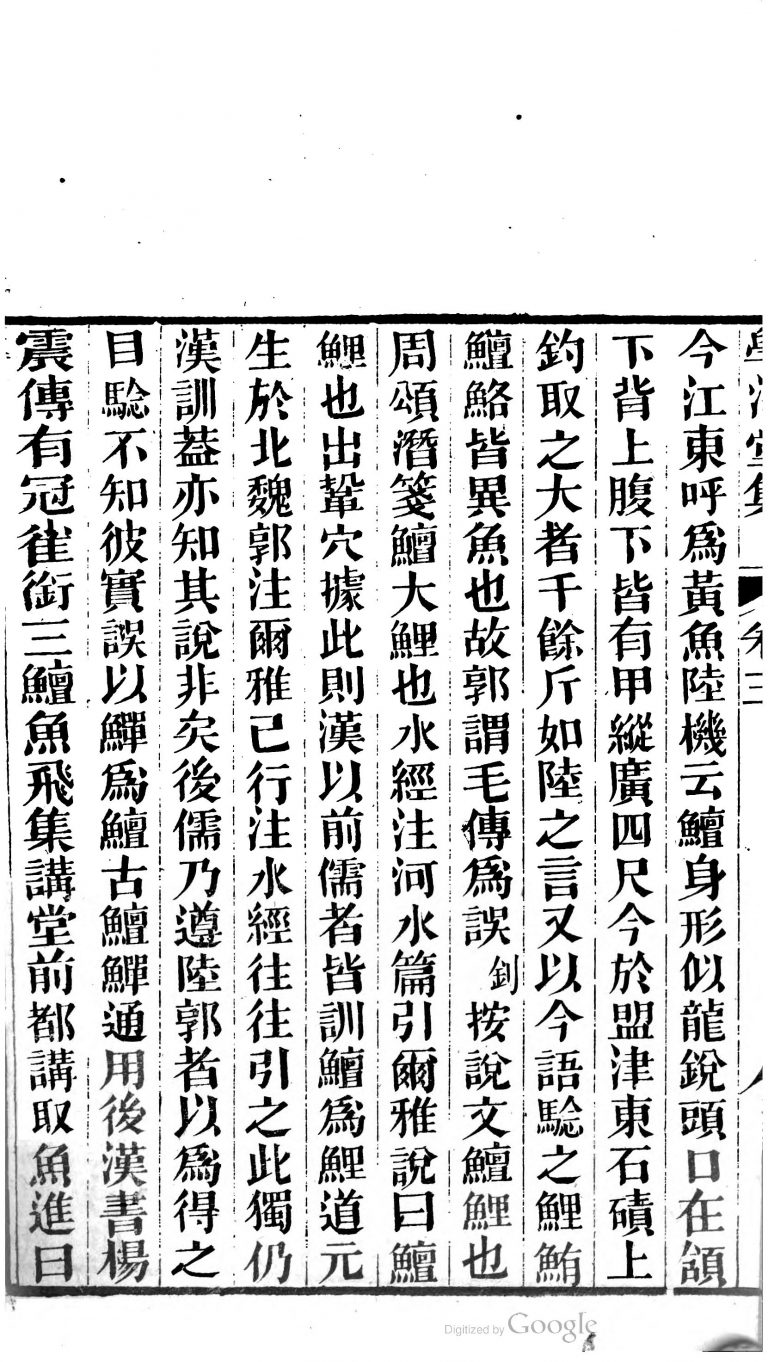 學海堂集 卷三
今江東呼為黃魚陸機云鱣身形似龍銳頭口在頷
下背上腹下皆有甲縱廣四尺今於盟津東石磧上
釣取之大者千餘斤如陸之言又以今語驗之鯉鮪
鱣鮥皆異魚也故郭謂毛傳為誤 釗按說文鱣鯉也
周頌潛箋鱣大鯉也水經注河水篇引爾雅說曰鱣
鯉也出鞏穴據此則漢以前儒者皆訓鱣為鯉道元
生於北魏郭注爾雅已行注水經往往引之此獨仍
漢訓葢亦知其說非矣後儒乃遵陸郭者以為得之
目驗不知彼實誤以鱓為鱣古鱣鱓通用後漢書楊
震傳有冠雀銜三鱣魚飛集講堂前都講取魚進曰
Digitized by Google